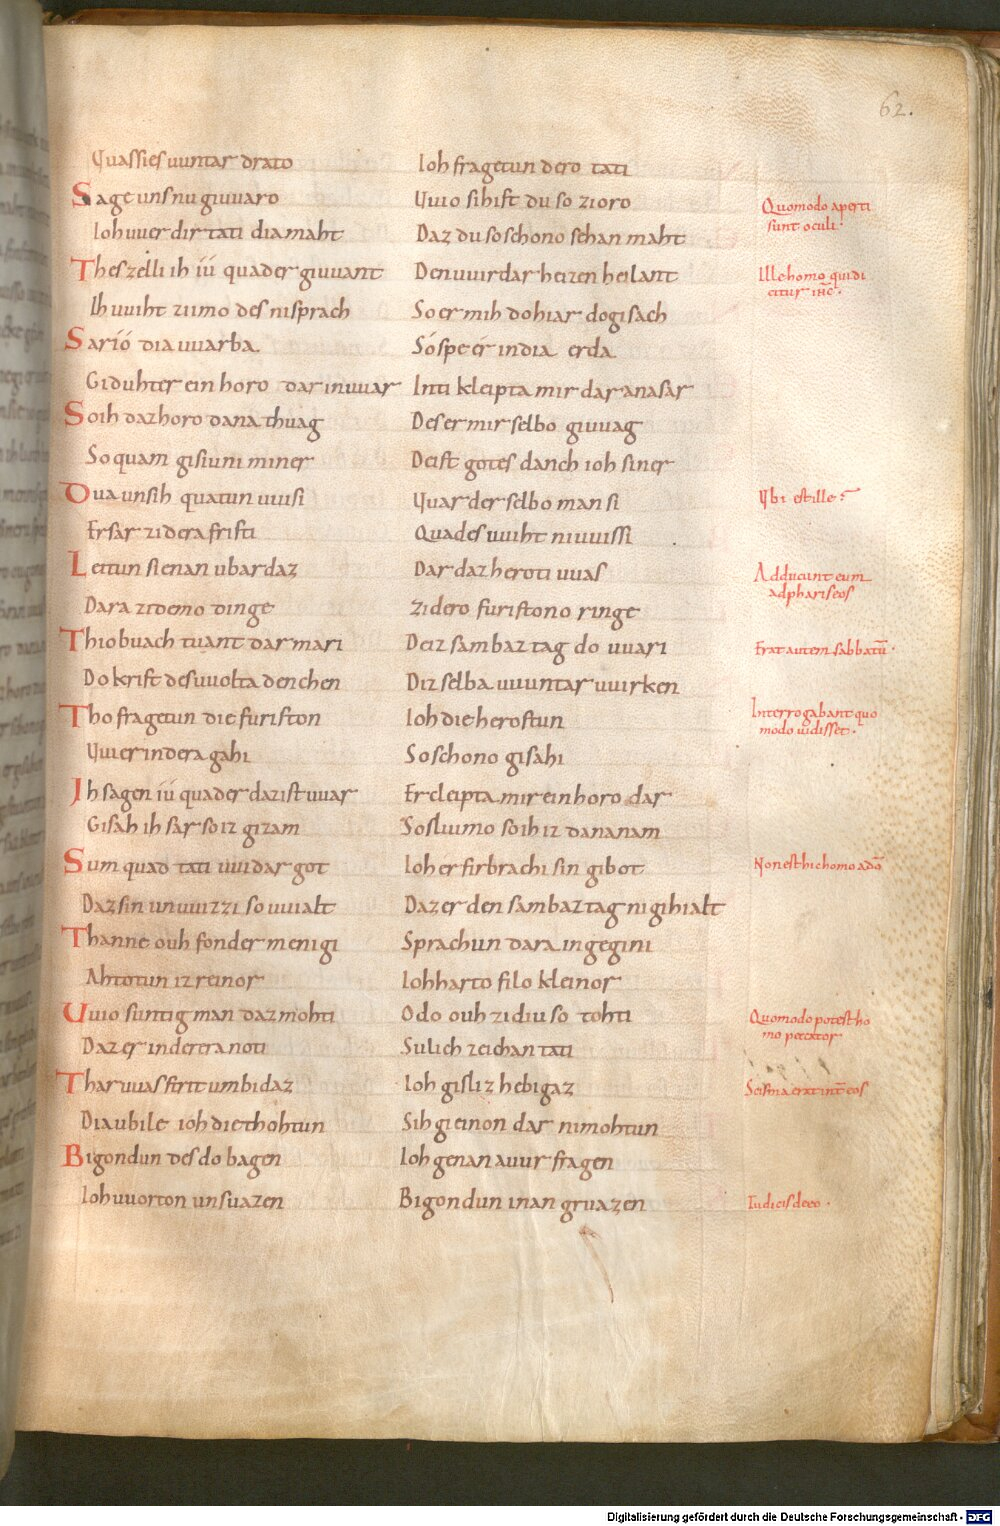 62.
Quassies uuntar drato Ioh fragetun dero tati
Sage uns nu giuuaro Uuio sihist du so zioro Quomodo aperti
sunt oculi.
Ioh uuer dir tati dia maht Daz du so schono sehan maht
Thes zelli ih íu quad er giuuant Den uuir dar heizen heilant Ille homo qui di
citur ihc.
Ih uuiht ziimo des nisprach So er mih do hiar dogisach
Sar ió dia uuarba Só spe ér in dia erda
Giduhter ein horo dar in uuar Inti kleipta mir dar ana sar
So ih daz horo dana thuag Des er mir selbo giuuag
So quam gisiuni miner Deist gotes danch ioh siner
Dua unsih quatun uuisi Uuar der selbo man si Ubi est ille?
Er sar zi dera fristi Quad es uuiht ni uuissi
Leitun sie nan ubar daz Dar daz heroti uuas Adducunt eum
ad phariseos
Dara zi demo dinge zi dero furistono ringe
Thiobuach tuant dar mari Deiz sambaztag do uuari Erat autem sabbatū.
Do krist des uuolta denchen Diz selba uuuntar uuirken
Tho fragetun die furiston Ioh die herostun Interrogabant quo
modo uidisset.
Uuier in dera gahi So schono gisahi
Ih sagen íu quad er daz ist uuar Er cleipta mir ein horo dar
Gisah ih sar so iz gizam So sliumo so ih iz dananam
Sum quad tati uuidar got Ioh er firbrachi sin gibot Non est hic homo a dō
Daz sin unuuizzi so uuialt Daz er den sambaztag ni gihialt
Thanne ouh fonder menigi Sprachun dara ingegini
Ahtotun iz reinor Ioh harto filo kleinor
Uuio suntig man daz mohti Odo ouh zi diu so tohti Quomodo potest ho
mo peccator
Daz er in dera noti Sulich zeichan tati
Thar uuas ferit umbi daz Ioh gisliz hebigaz Scisma erat int eos
Dia ubile ioh die thohtun Sih gieinon dar ni mohtun
Bigondun des do bagen Ioh genan auur fragen
Ioh uuorton unsuazen Bigondun inan gruazen Tu dicis de eo.
Digitalisierung gefördert durch die Deutsche Forschungsgemeinschaft - DFG